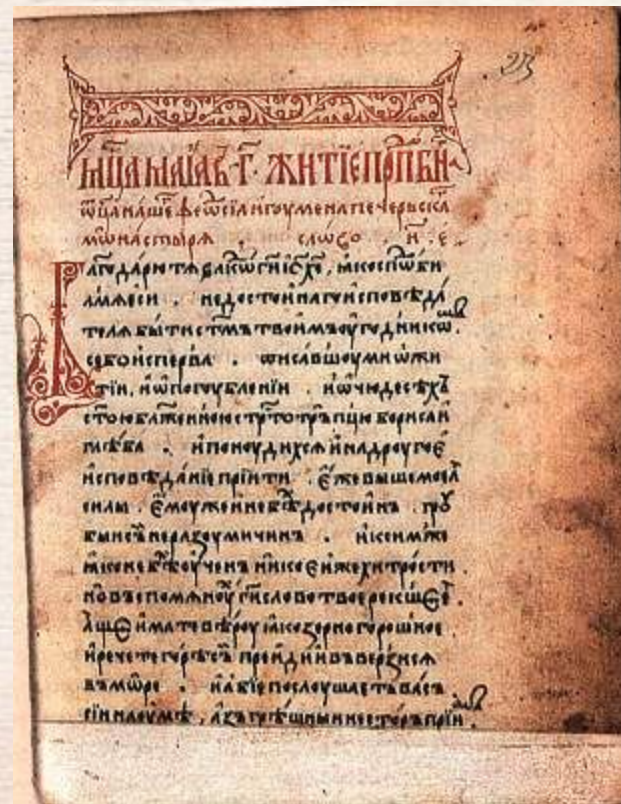 мц҃а маіа въ · г҃ · житїе прп҇бн
ѡц҃а наше҇ ѳеѡсїа игоумена печерьска
мѡнастырѧ , слѡво . н҃ . е
лагодарю тѧ влк҇о гн҃ іс҃ хе҃ , ꙗко спо҇би
лъ мѧ еси . недостоинаго исповѣда
телѧ быти ст҃мъ твоимъ оугодникѡ
се бо исперва . писавшоу ми ѡ жи
тїи , и ѡ погоублении . и ѡ чюдесѣхъ
ст҃ою блаженною стр҇тотръпцю бориса и
глѣба . и поноудихсѧ и на дроугое
исповѣданїе прїити . еже выше моеꙗ
силы . емоуже и не бѣ҇ достоинъ . гроу
бъ и сы҇ и неразоумиченъ . и к сим же
ꙗко не бѣ҇ оученъ никоеиже хитрости
но въспомѧноу҇ гн҃ слово твое рекшее
аще имате вѣроу ꙗко зерно горошное
и речете горѣ сѣ҇ преиди и въверзисѧ
въ море . и абїе послоушаеть васъ
сїи на оумѣ , азъ грѣшныи несторъ прїи